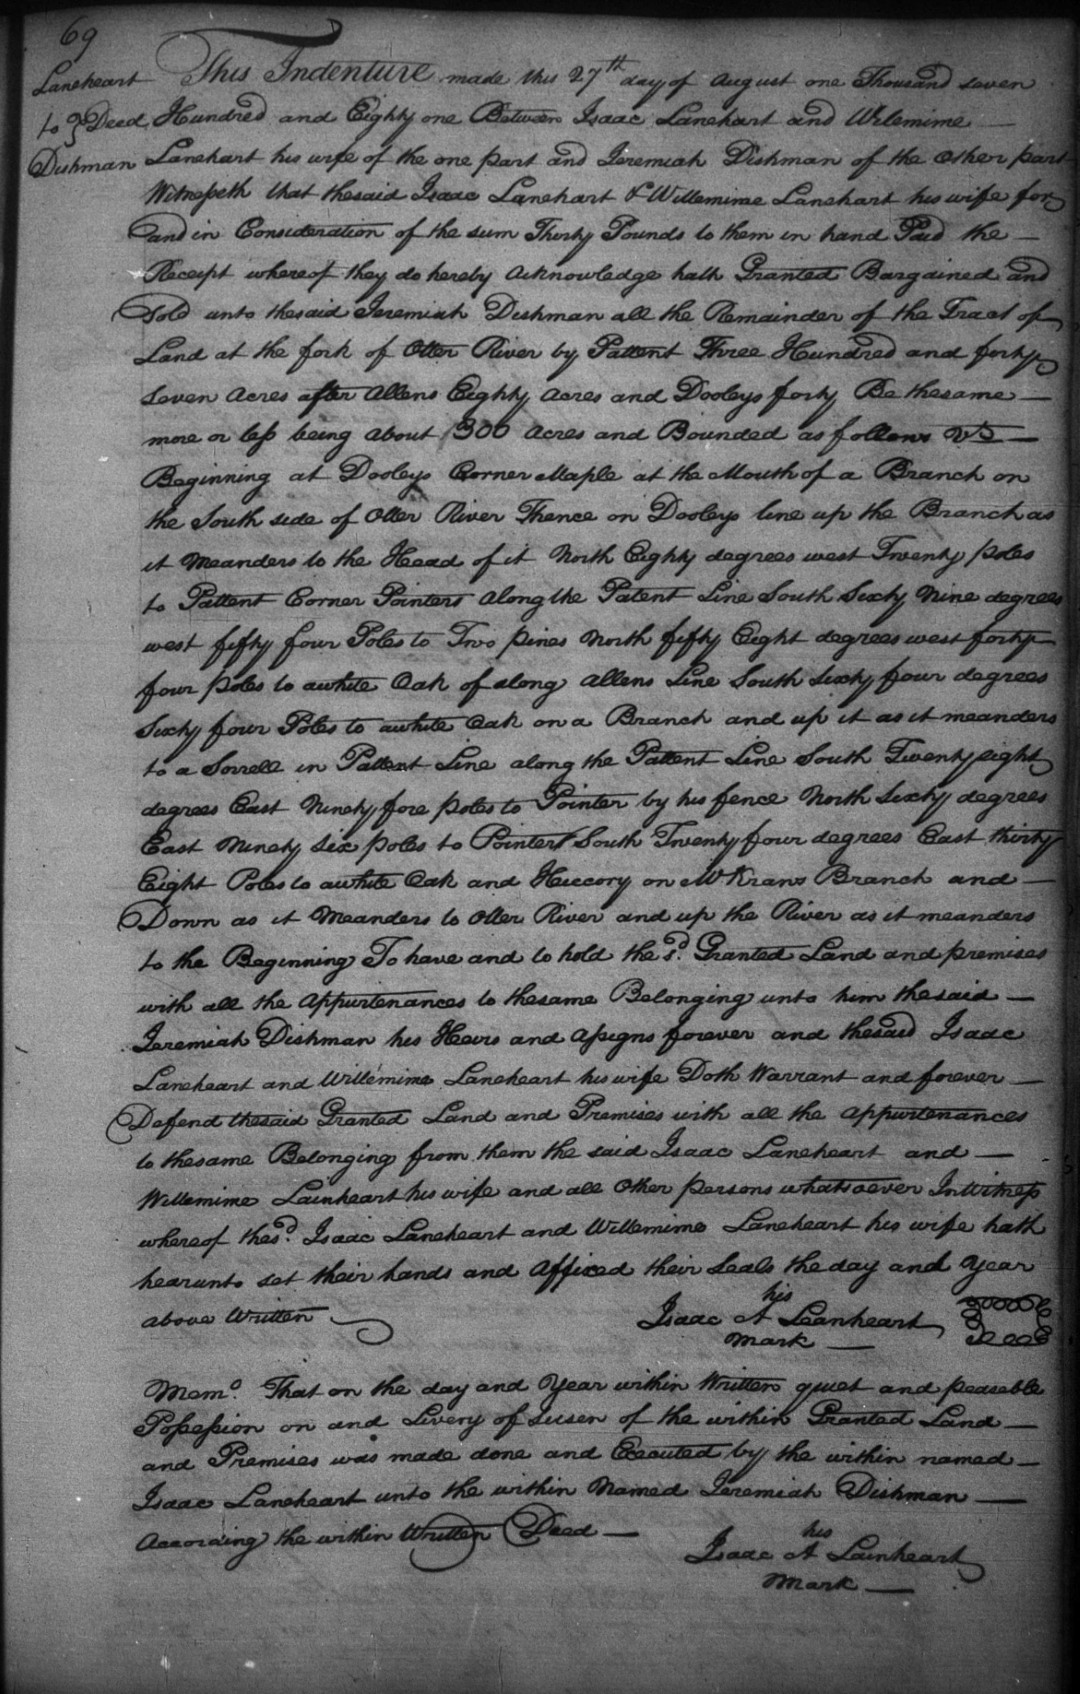 69
Laneheart
to } Deed
Dishman
This Indenture made this 27th day of August one Thousand seven
Hundred and Eighty one Between Isaac Lanehart and Wilemime
Lanehart his wife of the one part and Jeremiah Dishman of the other part
Witnesseth that thesaid Isaac Lanehart & Willemime Lanehart his wife for
and in Consideration of the sum Thirty Pounds to them in hand Paid the
Receipt whereof they do hereby acknowledge hath Granted Bargained and
Sold unto thesaid Jeremiah Dishman all the Remainder of the Tract of
Land at the fork of Otter River by Pattent Three Hundred and forty
seven Acres after Allens Eighty Acres and Dooleys forty Be thesame
more or less being about 300 Acres and Bounded as follows Vs
Beginning at Dooleys Corner Maple at the Mouth of a Branch on
the South side of Otter River Thence on Dooleys line up the Branch as
it Meanders to the Head of it North Eighty degrees west Twenty poles
to Pattent Corner Pointers along the Patent Line South Sixty Nine degrees
west fifty four Poles to Two pines North fifty Eight degrees west forty
four poles to awhite Oak of along Allens Line South Sixty four degrees
Sixty four Poles to awhite Oak on a Branch and up it as it meanders
to a Sorrell in Pattent Line along the Pattent Line South Twenty eight
degrees East Ninety fore poles to Pointer by his fence North Sixty degrees
East Ninety six poles to Pointers South Twenty four degrees East thirty
Eight Poles to awhite Oak and Hiccory on McKrans Branch and
Down as it Meanders to Otter River and up the River as it meanders
to the Beginning To have and to hold the sd. Granted Land and premises
with all the Appurtenances to thesame Belonging unto him thesaid
Jeremiah Dishman his Heirs and Assigns forever and thesaid Isaac
Laneheart and Willemime Laneheart his wife Doth Warrant and forever
Defend thesaid Granted Land and Premises with all the appurtenances
to thesame Belonging from them the said Isaac Laneheart and
Willemime Lainheart his wife and all Other persons whatsoever In Witness
whereof thesd. Isaac Laneheart and Willemime Laneheart his wife hath
hearunto set their hands and Affixed their Seals the day and Year
above Written
his
Isaac A Leanheart
mark
Seal
Memo. That on the day and Year within Written quiet and peaseble
Possession on and Livery of Seisen of the within Granted Land
and Premises was made done and Executed by the within named
Isaac Laneheart unto the within Named Jeremiah Dishman
According the within Written Deed
his
Isaac A Lainheart
mark